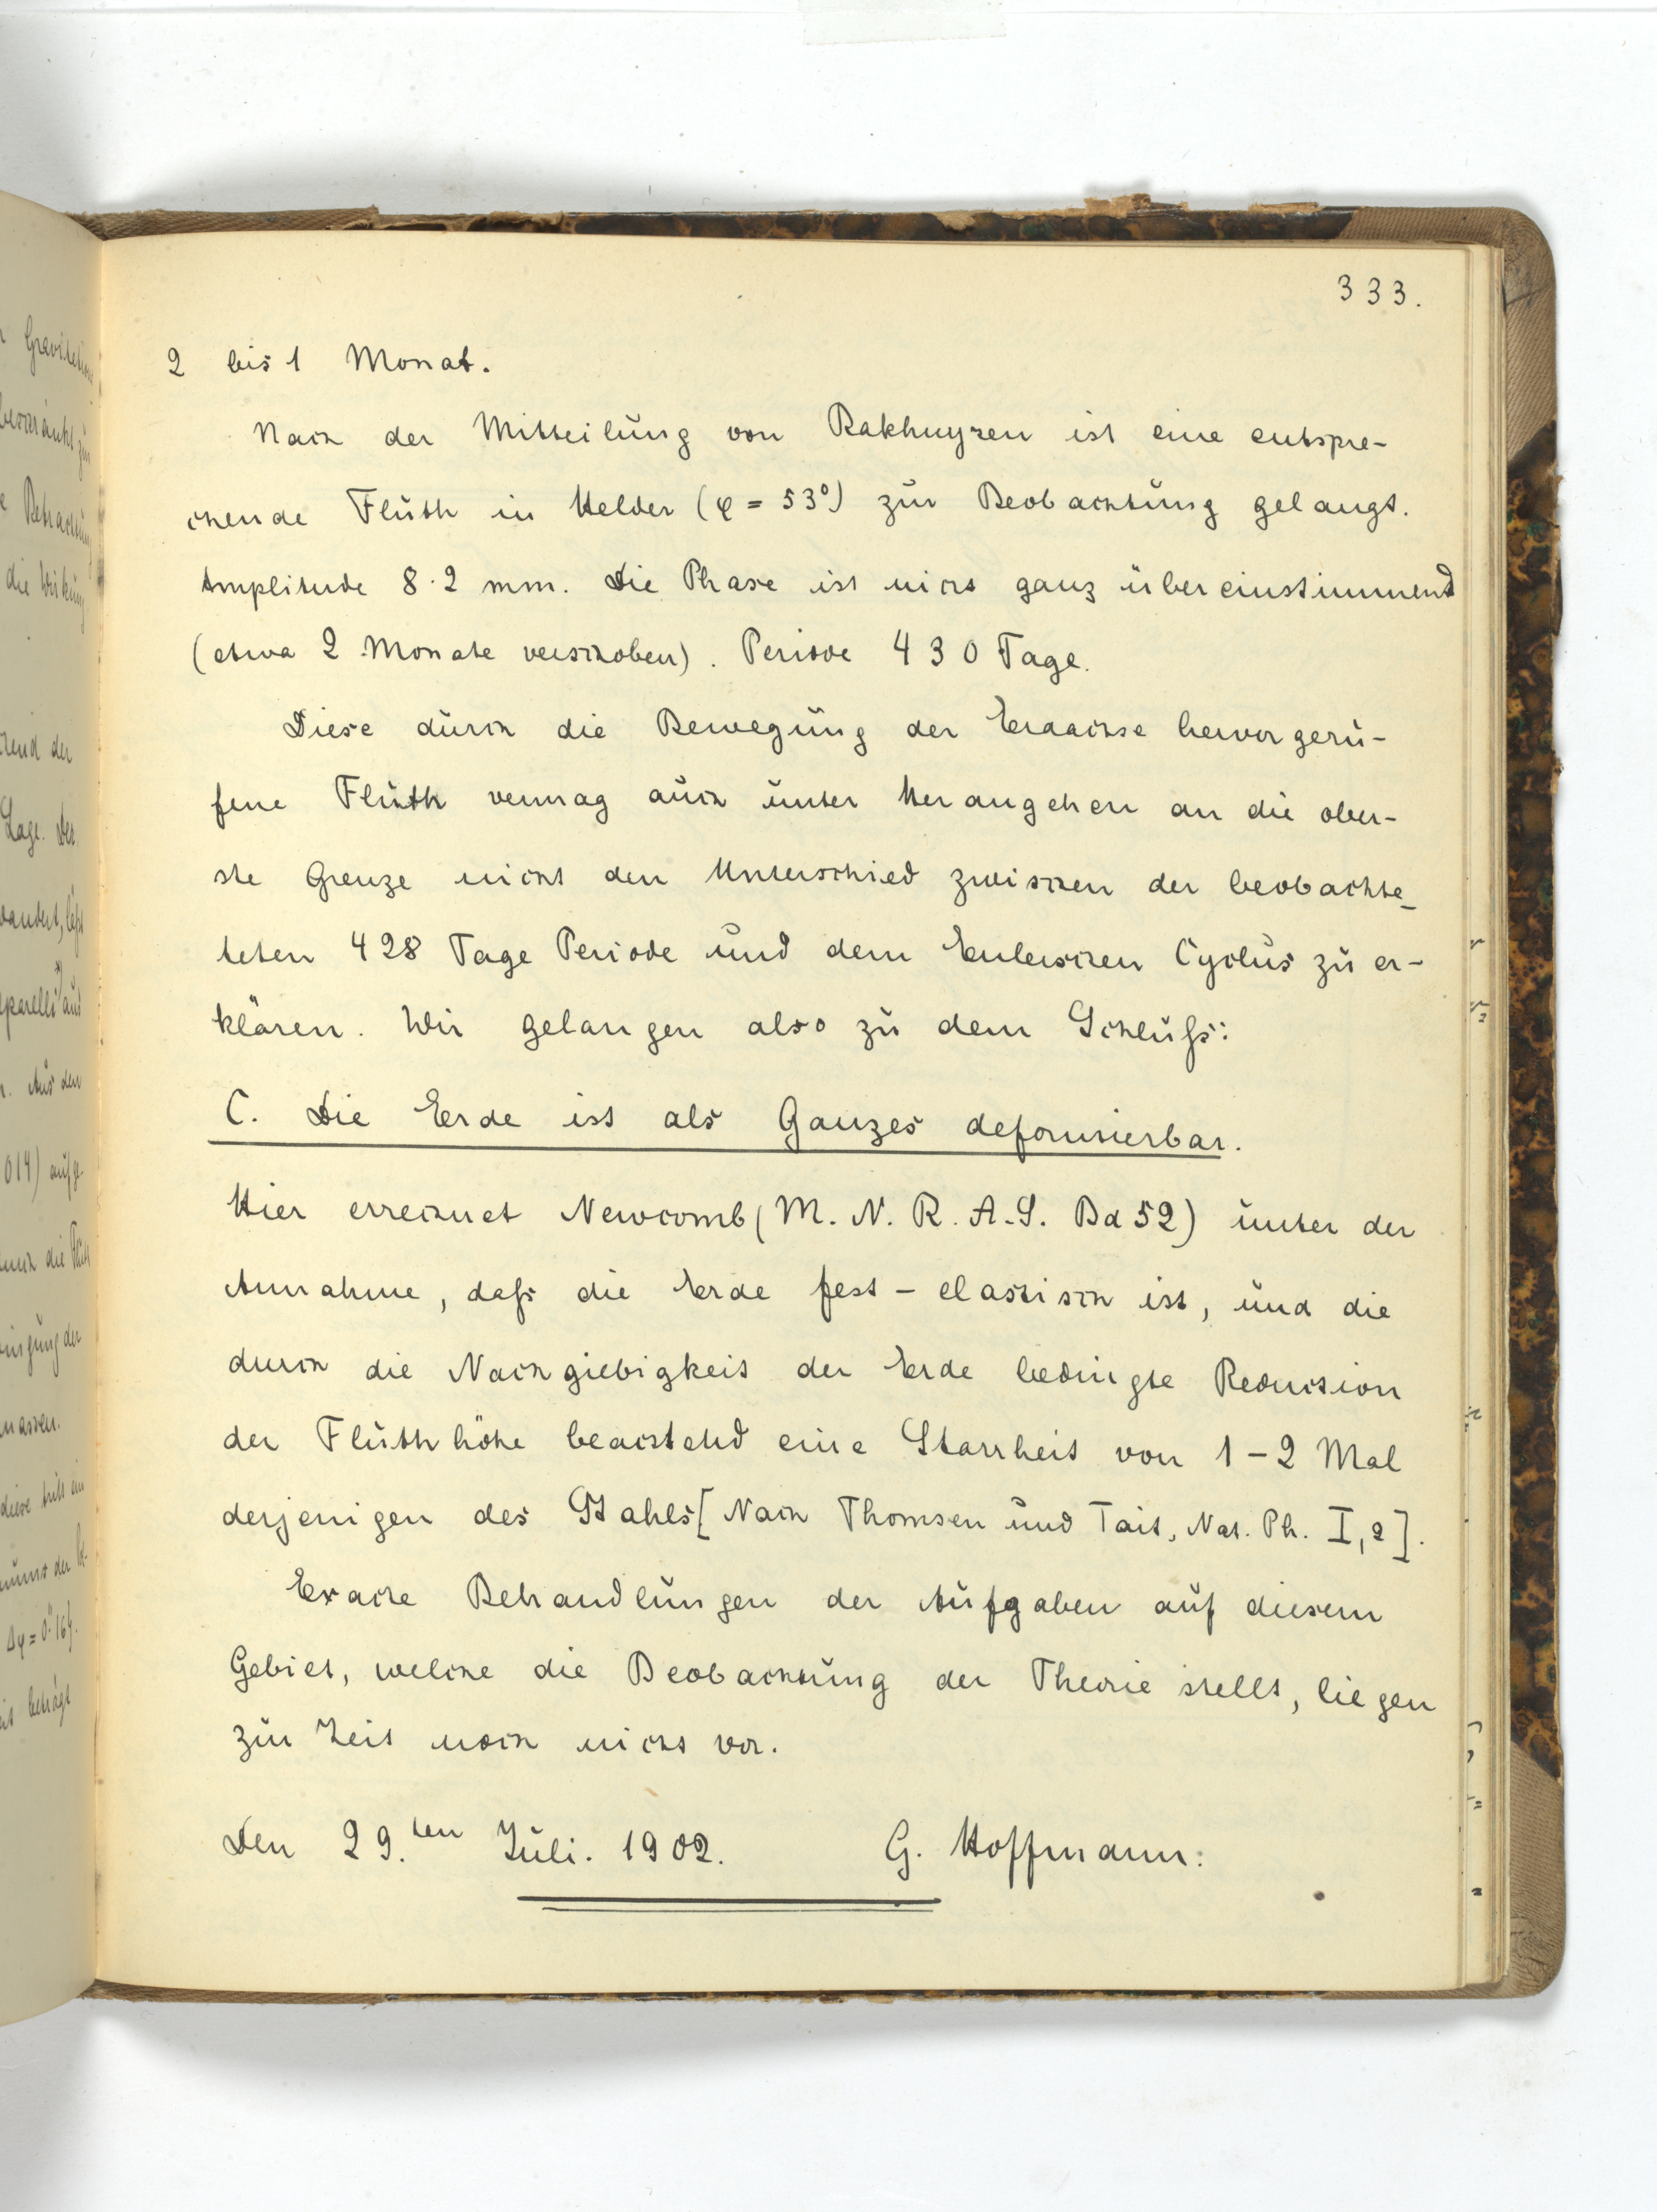 333.
2 bis 1 Monat.
Nach der Mitteilung von Bakhuyzen ist eine entspre-
chende Fluth in Helder (φ = 53°) zur Beobachtung gelangt.
Amplitude 8·2 mm. Die Phase ist nicht ganz übereinstimmend
(etwa 2 Monate verschoben). Periode 430 Tage.
Diese durch die Bewegung der Erdachse hervorgeru-
fene Fluth vermag auch unter Herangehen an die ober-
ste Grenze nicht den Unterschied zwischen der beobachte-
teten 428 Tage Periode und dem Eulerschen Cyclus zu er-
klären. Wir gelangen also zu dem Schluß:
C. Die Erde ist als Ganzes deformierbar.
Hier errechnet Newcomb (M. N. R. A. S. Bd 52) unter der
Annahme, daß die Erde fest-elastisch ist, und die
durch die Nachgiebigkeit der Erde bedingte Reduction
der Fluthhöhe beachtend eine Starrheit von 1-2 Mal
derjenigen des Stahls [Nach Thomsen und Tait, Nat. Ph. I,2].
Exacte Behandlungen der Aufgaben auf diesem
Gebiet, welche die Beobachtung der Theorie stellt, liegen
zur Zeit noch nicht vor.
Den 29.ten Juli. 1902. G. Hoffmann.